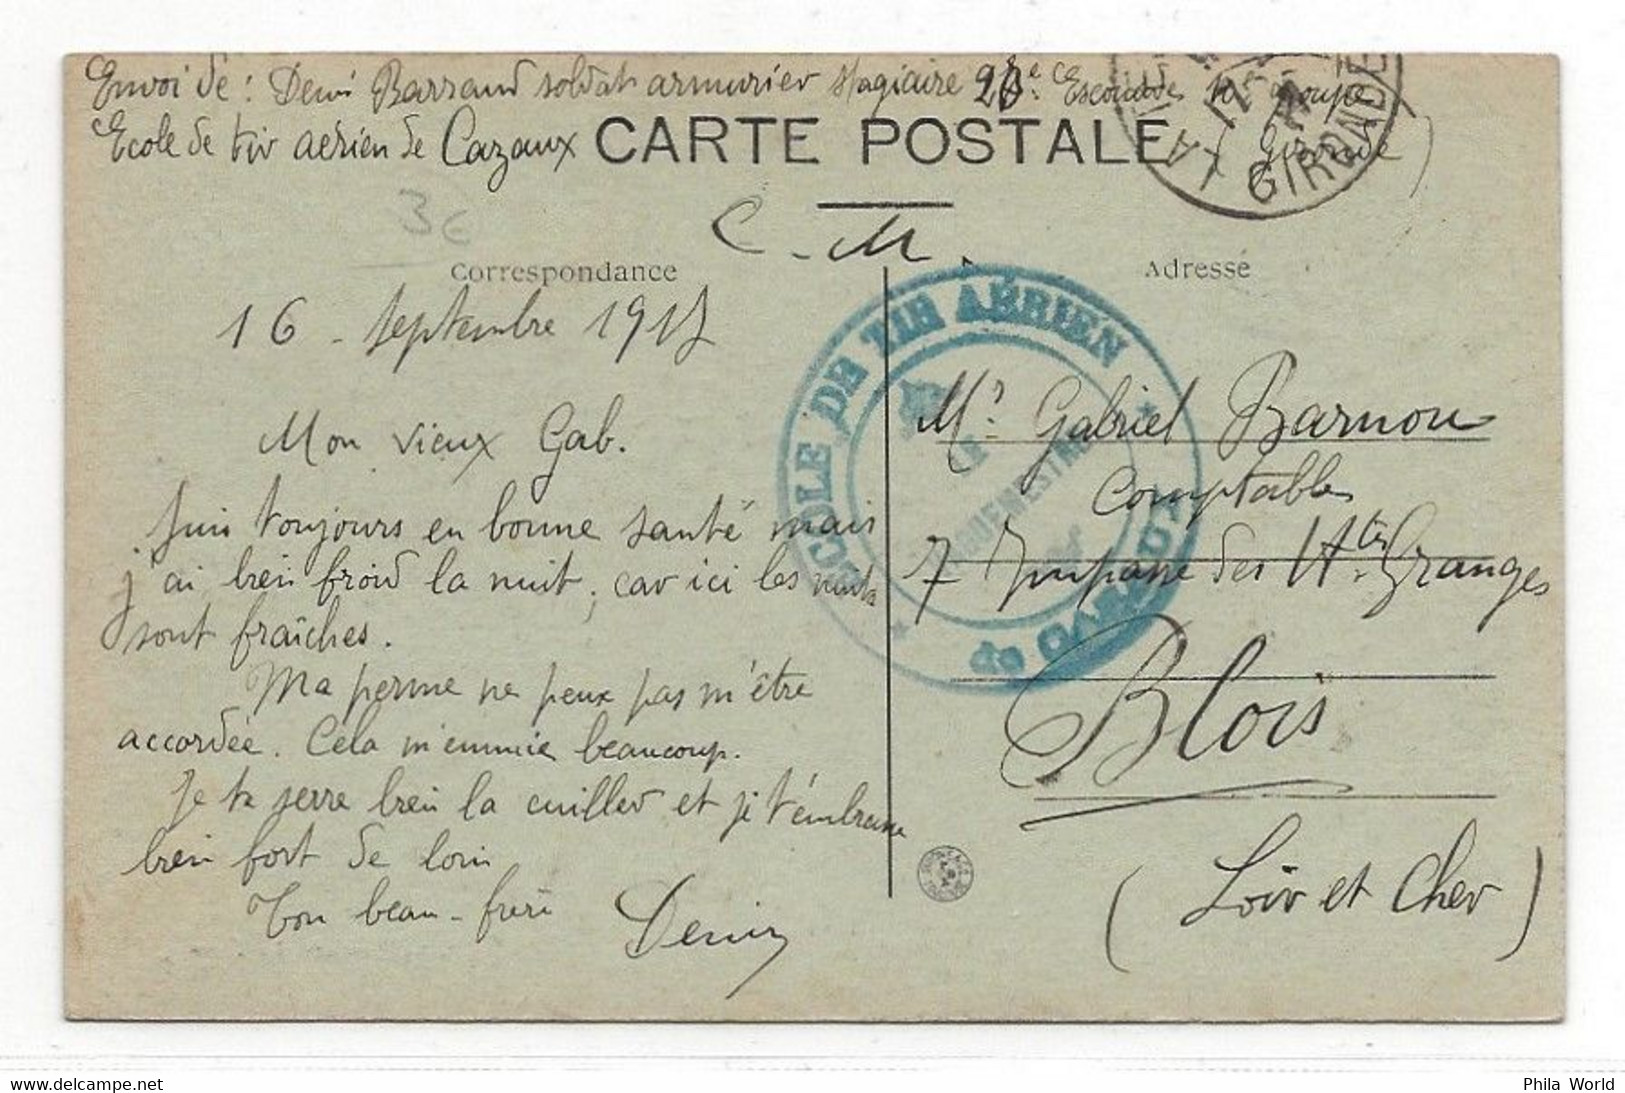 Envoi de : Denis Barrand soldat armurier stagiaire 26e Escouade 10e groupe
Ecole de tir aérien de Cazaux (Gironde)
CARTE POSTALE
GIRONDE
3€
C. M.
Correspondance
Adresse
16 - Septembre 1917
Mon vieux Gab.
Suis toujours en bonne santé mais
j'ai bien froid la nuit, car ici les nuits
sont fraîches.
Ma perme ne peux pas m'être
accordée. Cela m'ennuie beaucoup.
Je te serre bien la cuiller et je t'embrasse
bien fort de loin
Ton beau-frère
Denis
ECOLE DE TIR AÉRIEN
de CAZAUX
LE
VAGUEMESTRE
Mr Gabriel Barnou
Comptable
7 Impasse des Htes Granges
Blois
(Loir et Cher)
Phila World